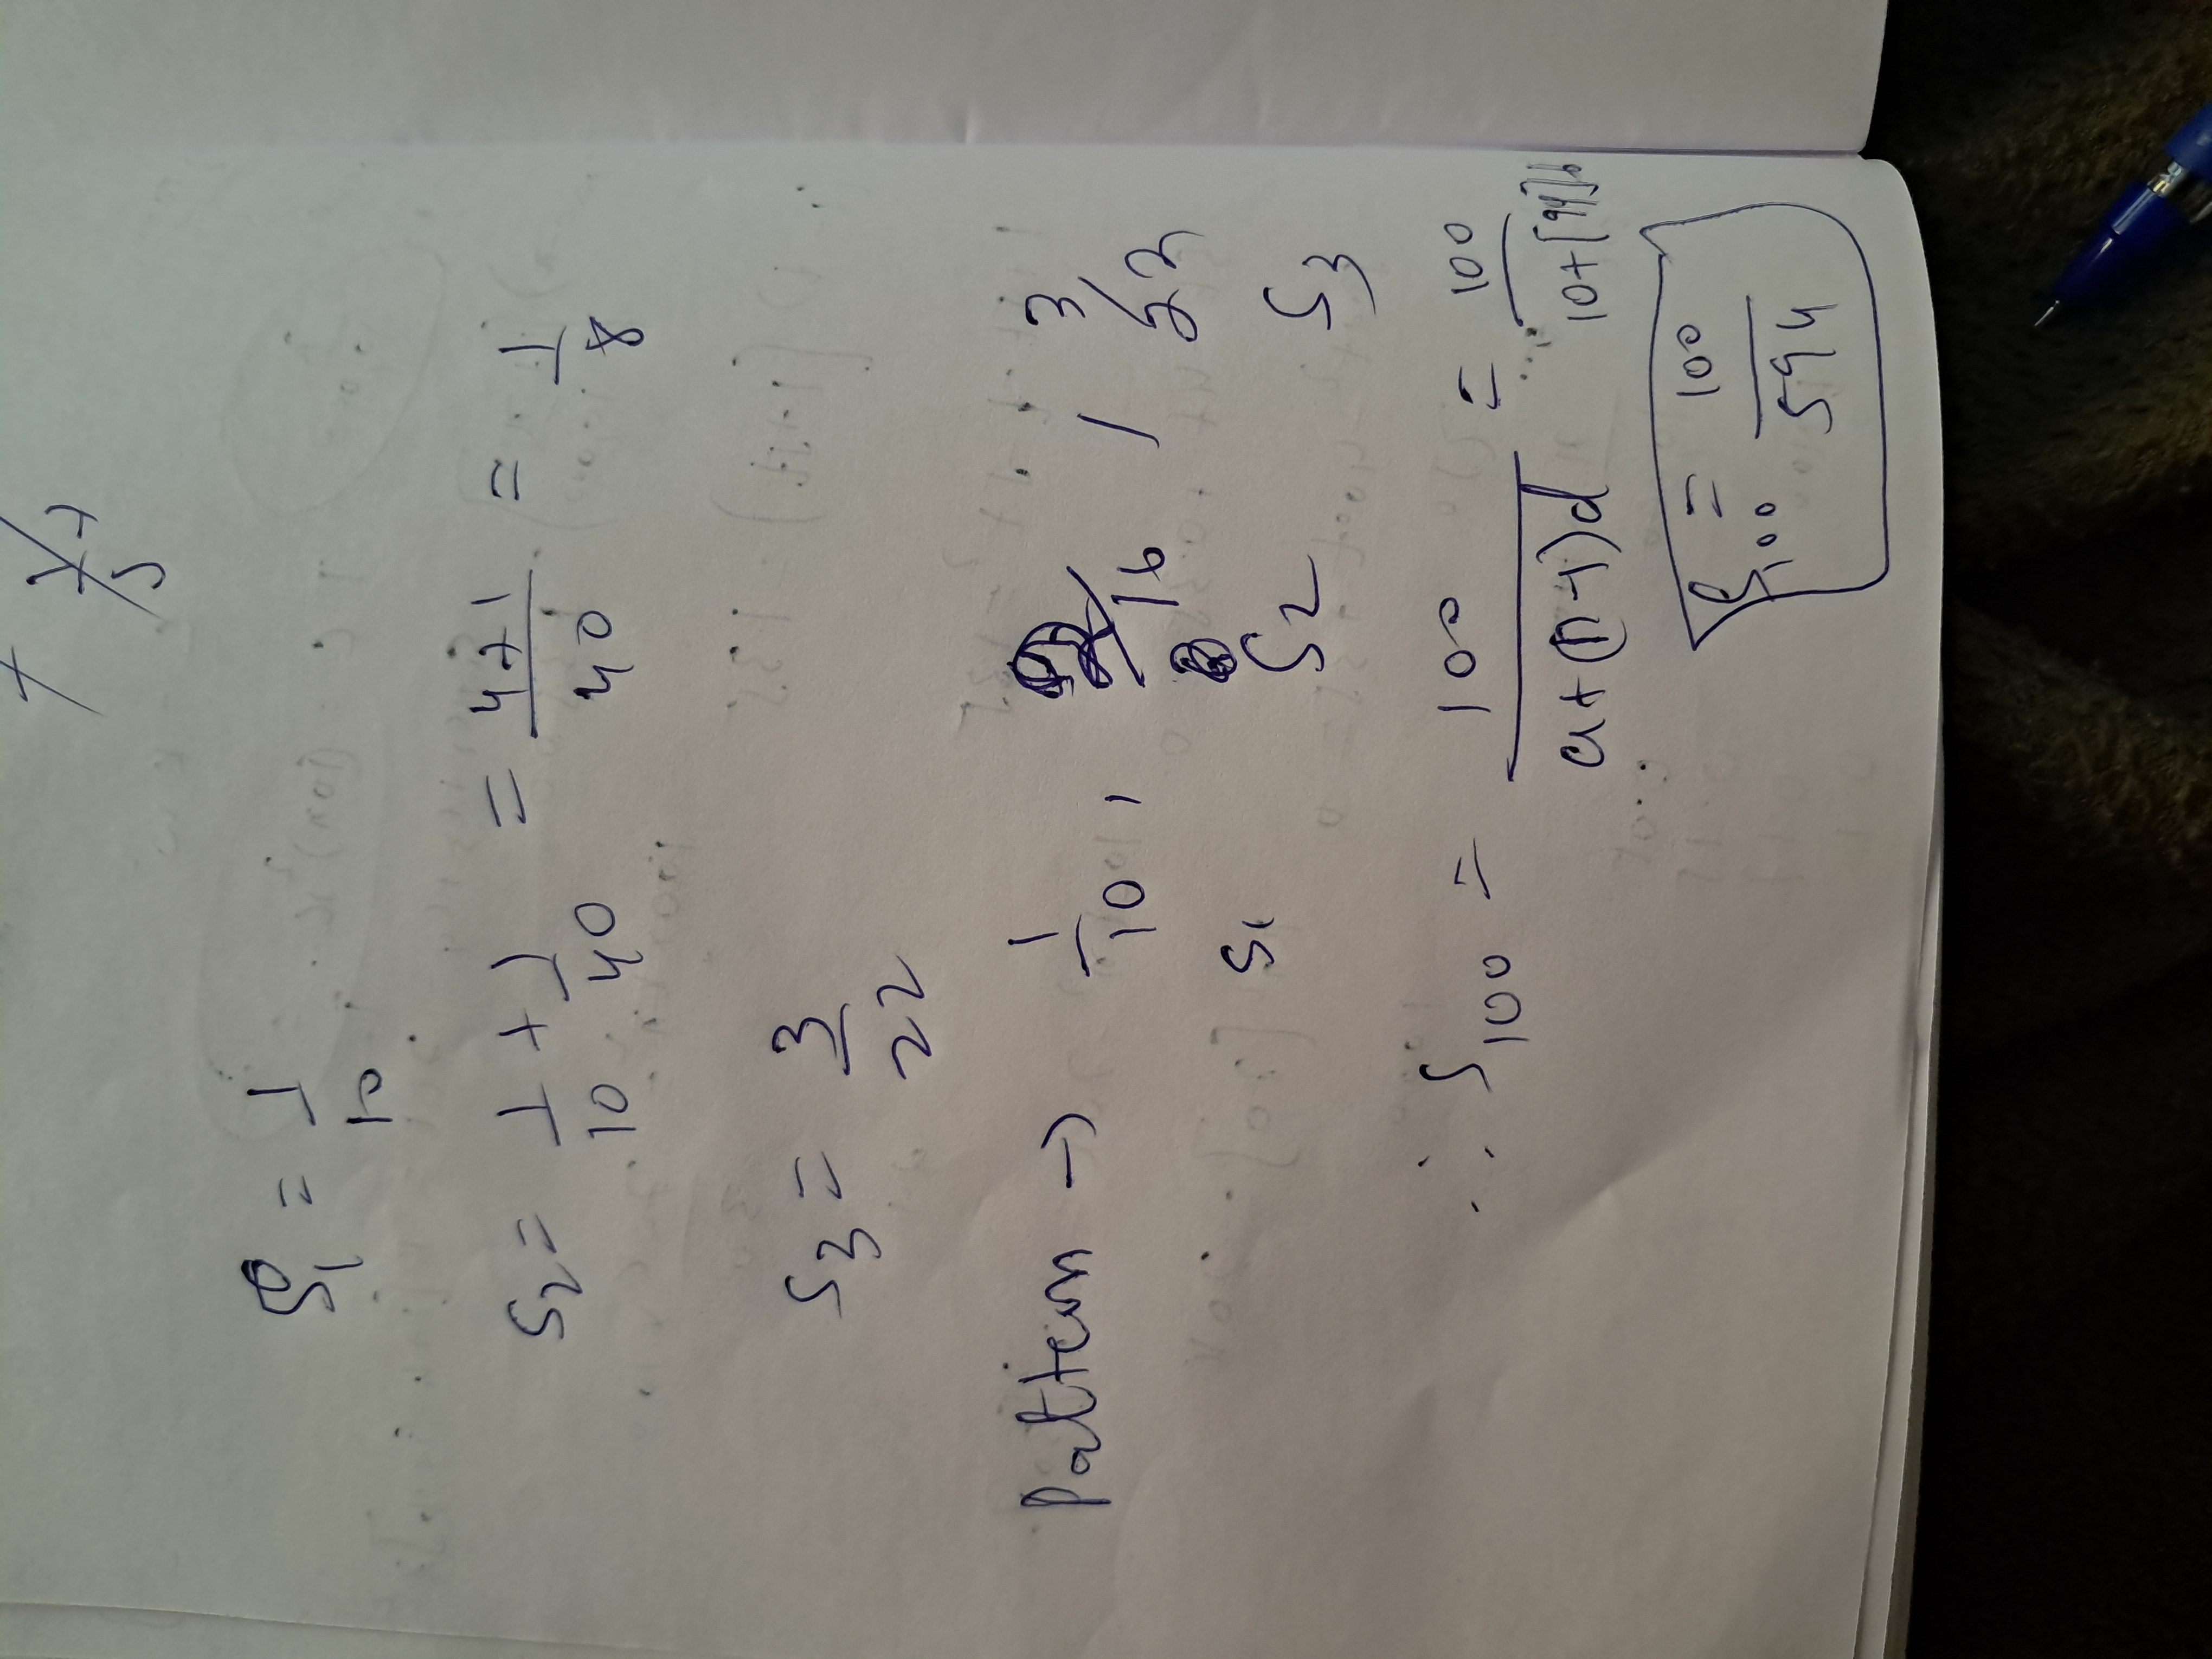 S₁ = 1/10
S₂ = 1/10 + 1/40 = 4+1/40 = 1/8
S₃ = 3/22
pattern → 1/10 , 2/16 , 3/22
S₁ S₂ S₃
∴ S₁₀₀ = 100/a+(n-1)d = 100/10+[99]6
S₁₀₀ = 100/594